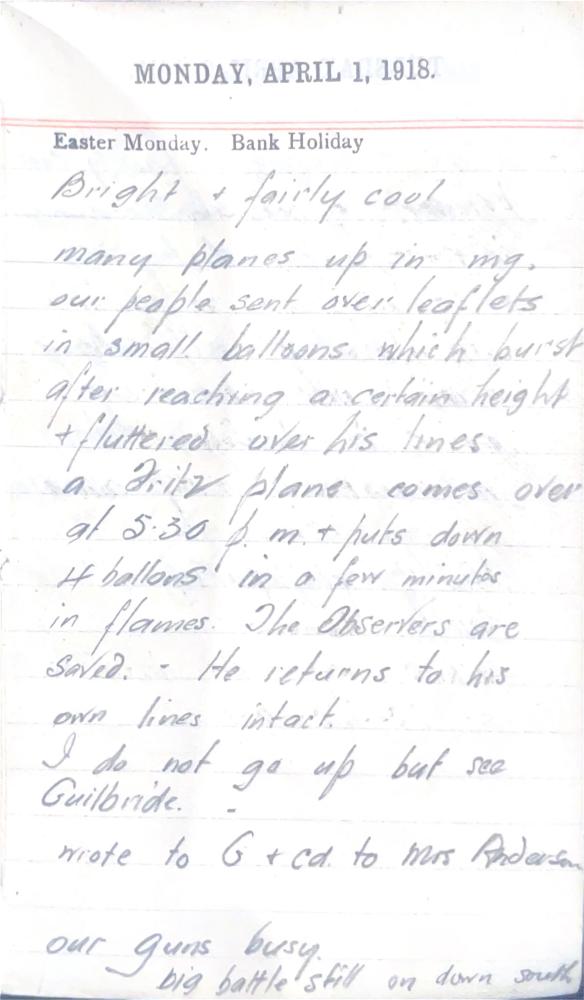 MONDAY, APRIL 1, 1918.
Easter Monday. Bank Holiday
Bright + fairly cool
many planes up in mg.
our people sent over leaflets
in small balloons which burst
after reaching a certain height
+ fluttered over his lines
a Fritz plane comes over
at 5.30 p.m. + puts down
4 ballons in a few minutes
in flames. The Observers are
saved. - He returns to his
own lines intact.
I do not go up but see
Guilbride. -
wrote to G + cd. to Mrs Anderson
our guns busy.
big battle still on down south